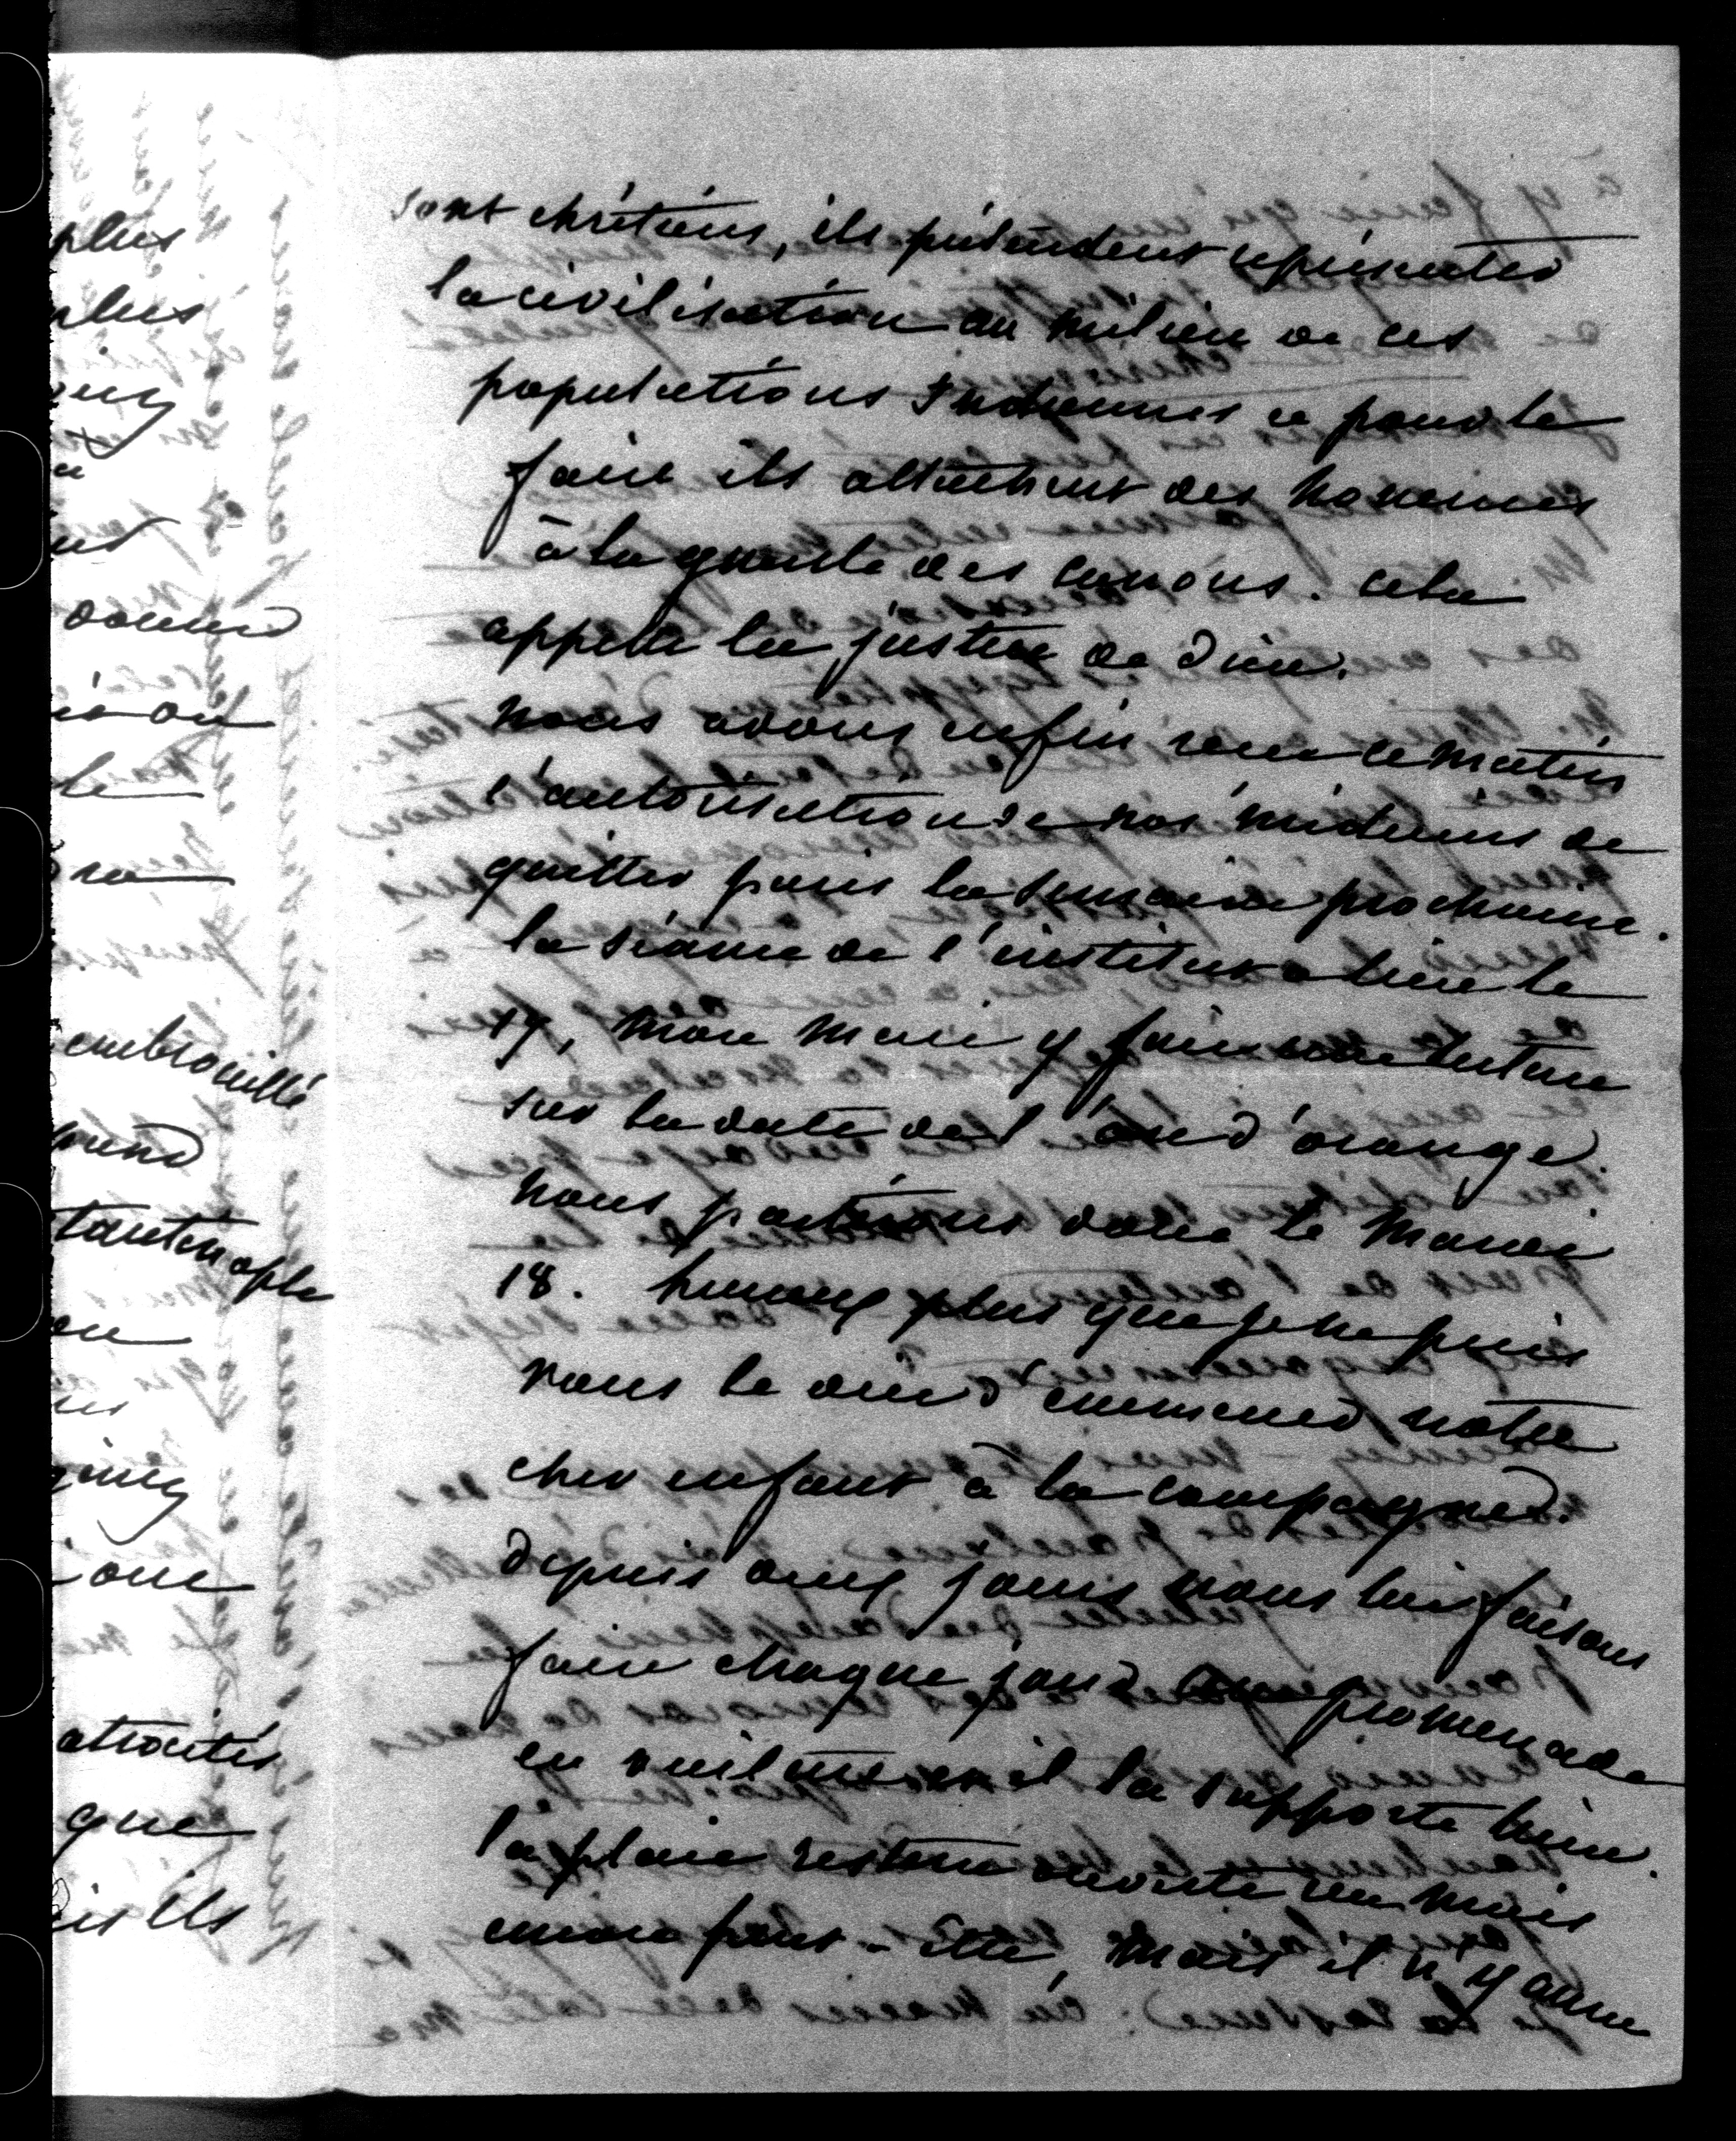 plus
plus
donner
embrouillé
atrocités
que
ils
sont chrétiens, ils prétendent représenter
la civilisation au milieu de ces
populations Indiennes et pour le
faire ils attachent des hommes
à la gueule des canons. cela
appelle la justice de Dieu.
nous avons enfin reçu ce matin
l'autorisation de nos médecins de
quitter paris la semaine prochaine.
la séance de l'institut a lieu le
17, mon mari y fait une lecture
sur la date de l'arc d'orange.
nous partirons donc le mardi
18. heureux plus que je ne puis
vous le dire d'emmener notre
cher enfant à la campagne.
depuis cinq jours nous lui faisons
faire chaque jour une promenade
en voiture et il la supporte bien.
la plaie restera ouverte un mois
encore peut-être, mais il n'y aura